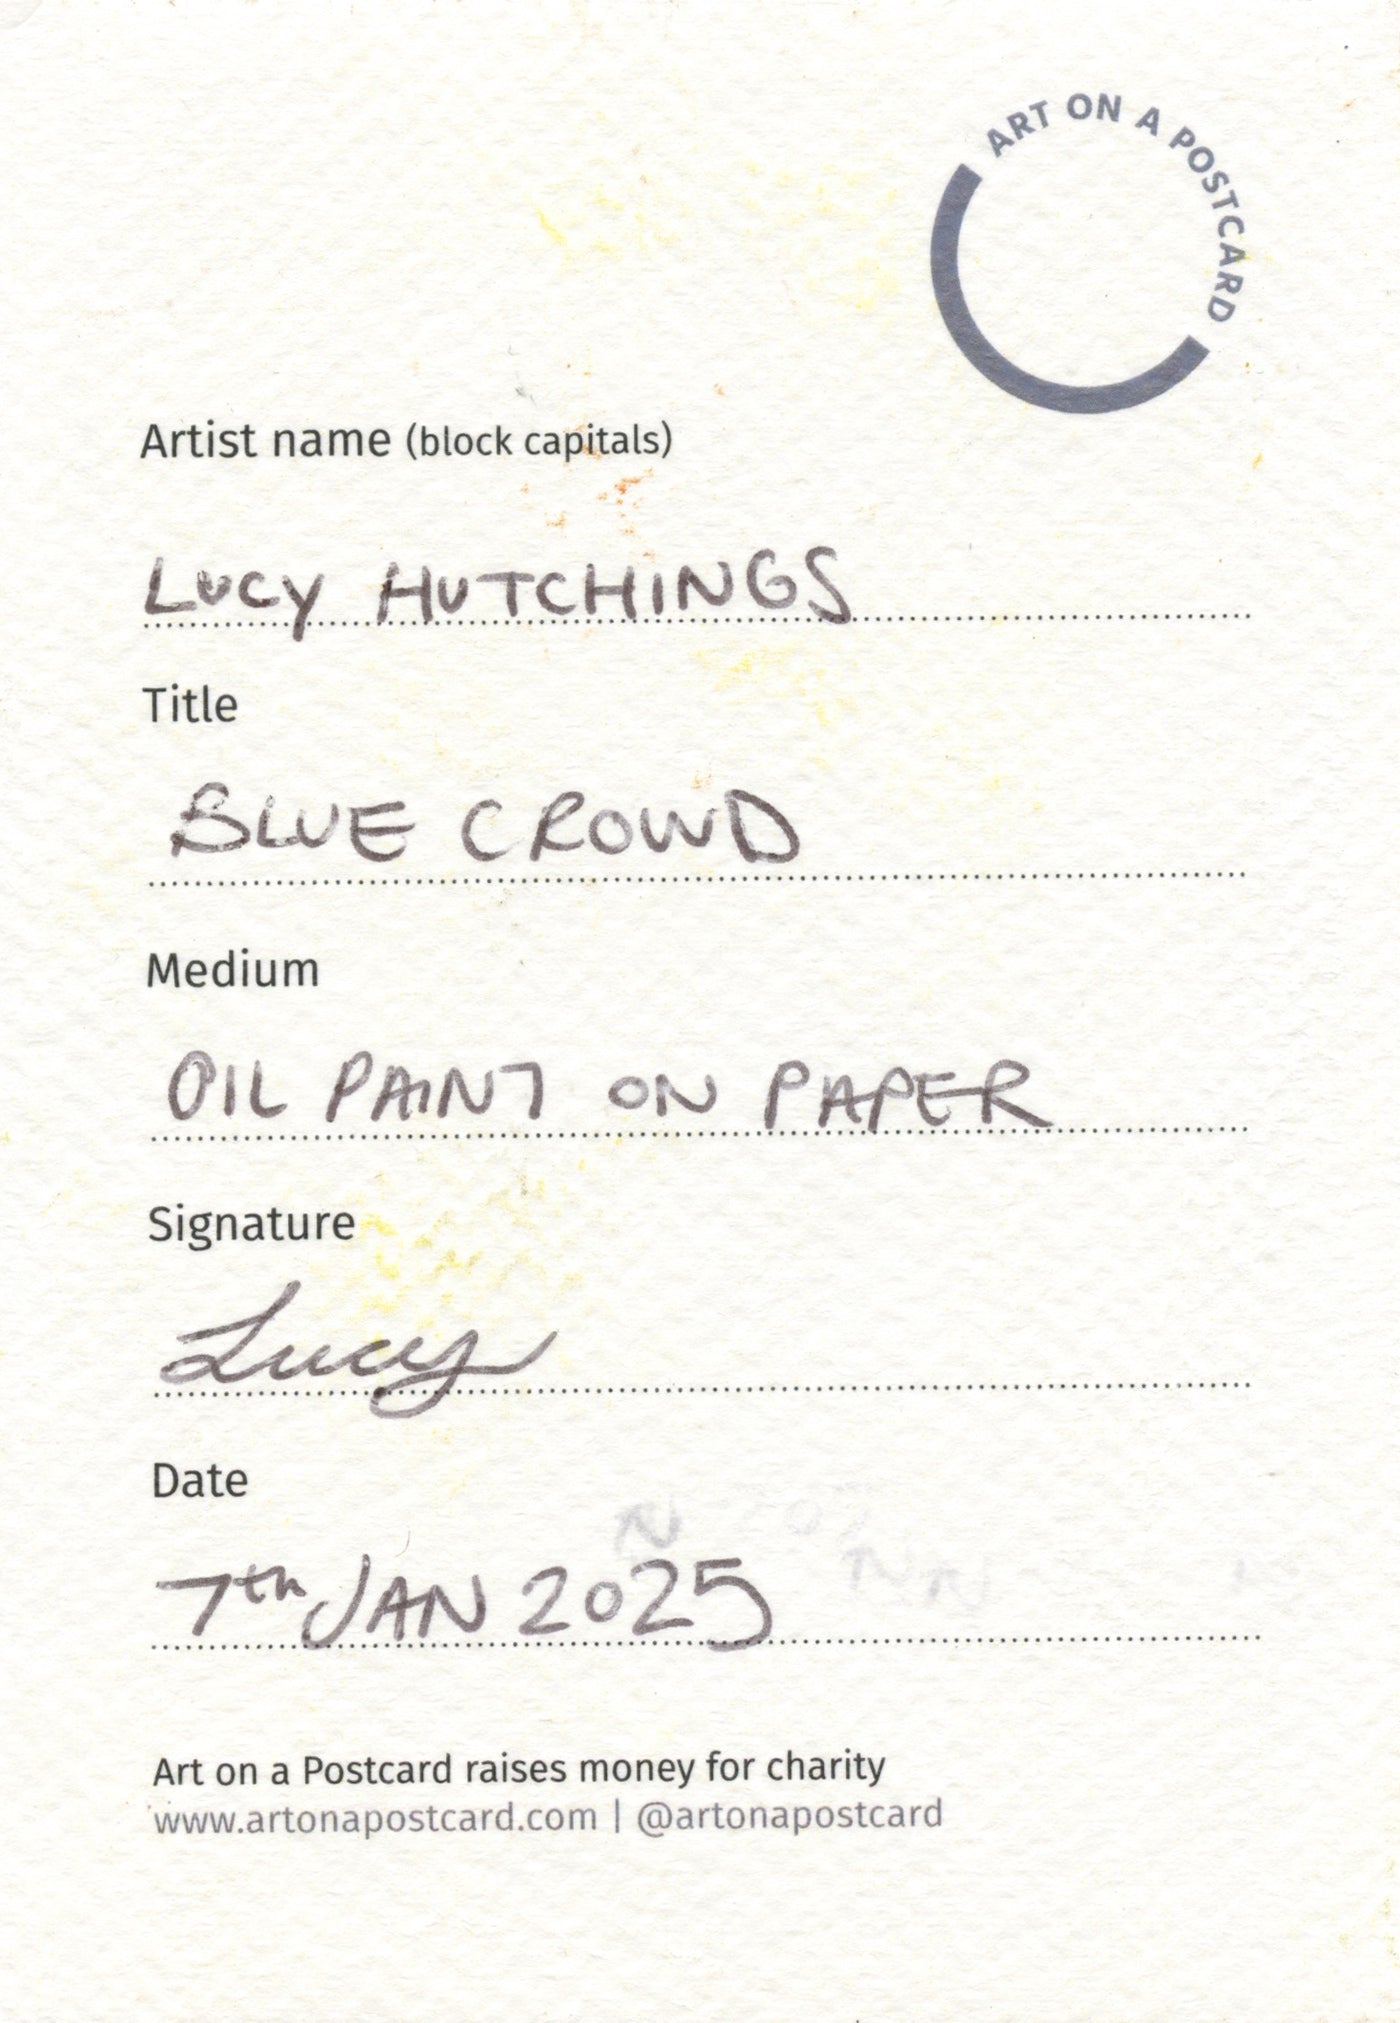 ART ON A POSTCARD
Artist name (block capitals)
LUCY HUTCHINGS
Title
BLUE CROWD
Medium
OIL PAINT ON PAPER
Signature
Lucy
Date
7th JAN 2025
Art on a Postcard raises money for charity
www.artonapostcard.com | @artonapostcard